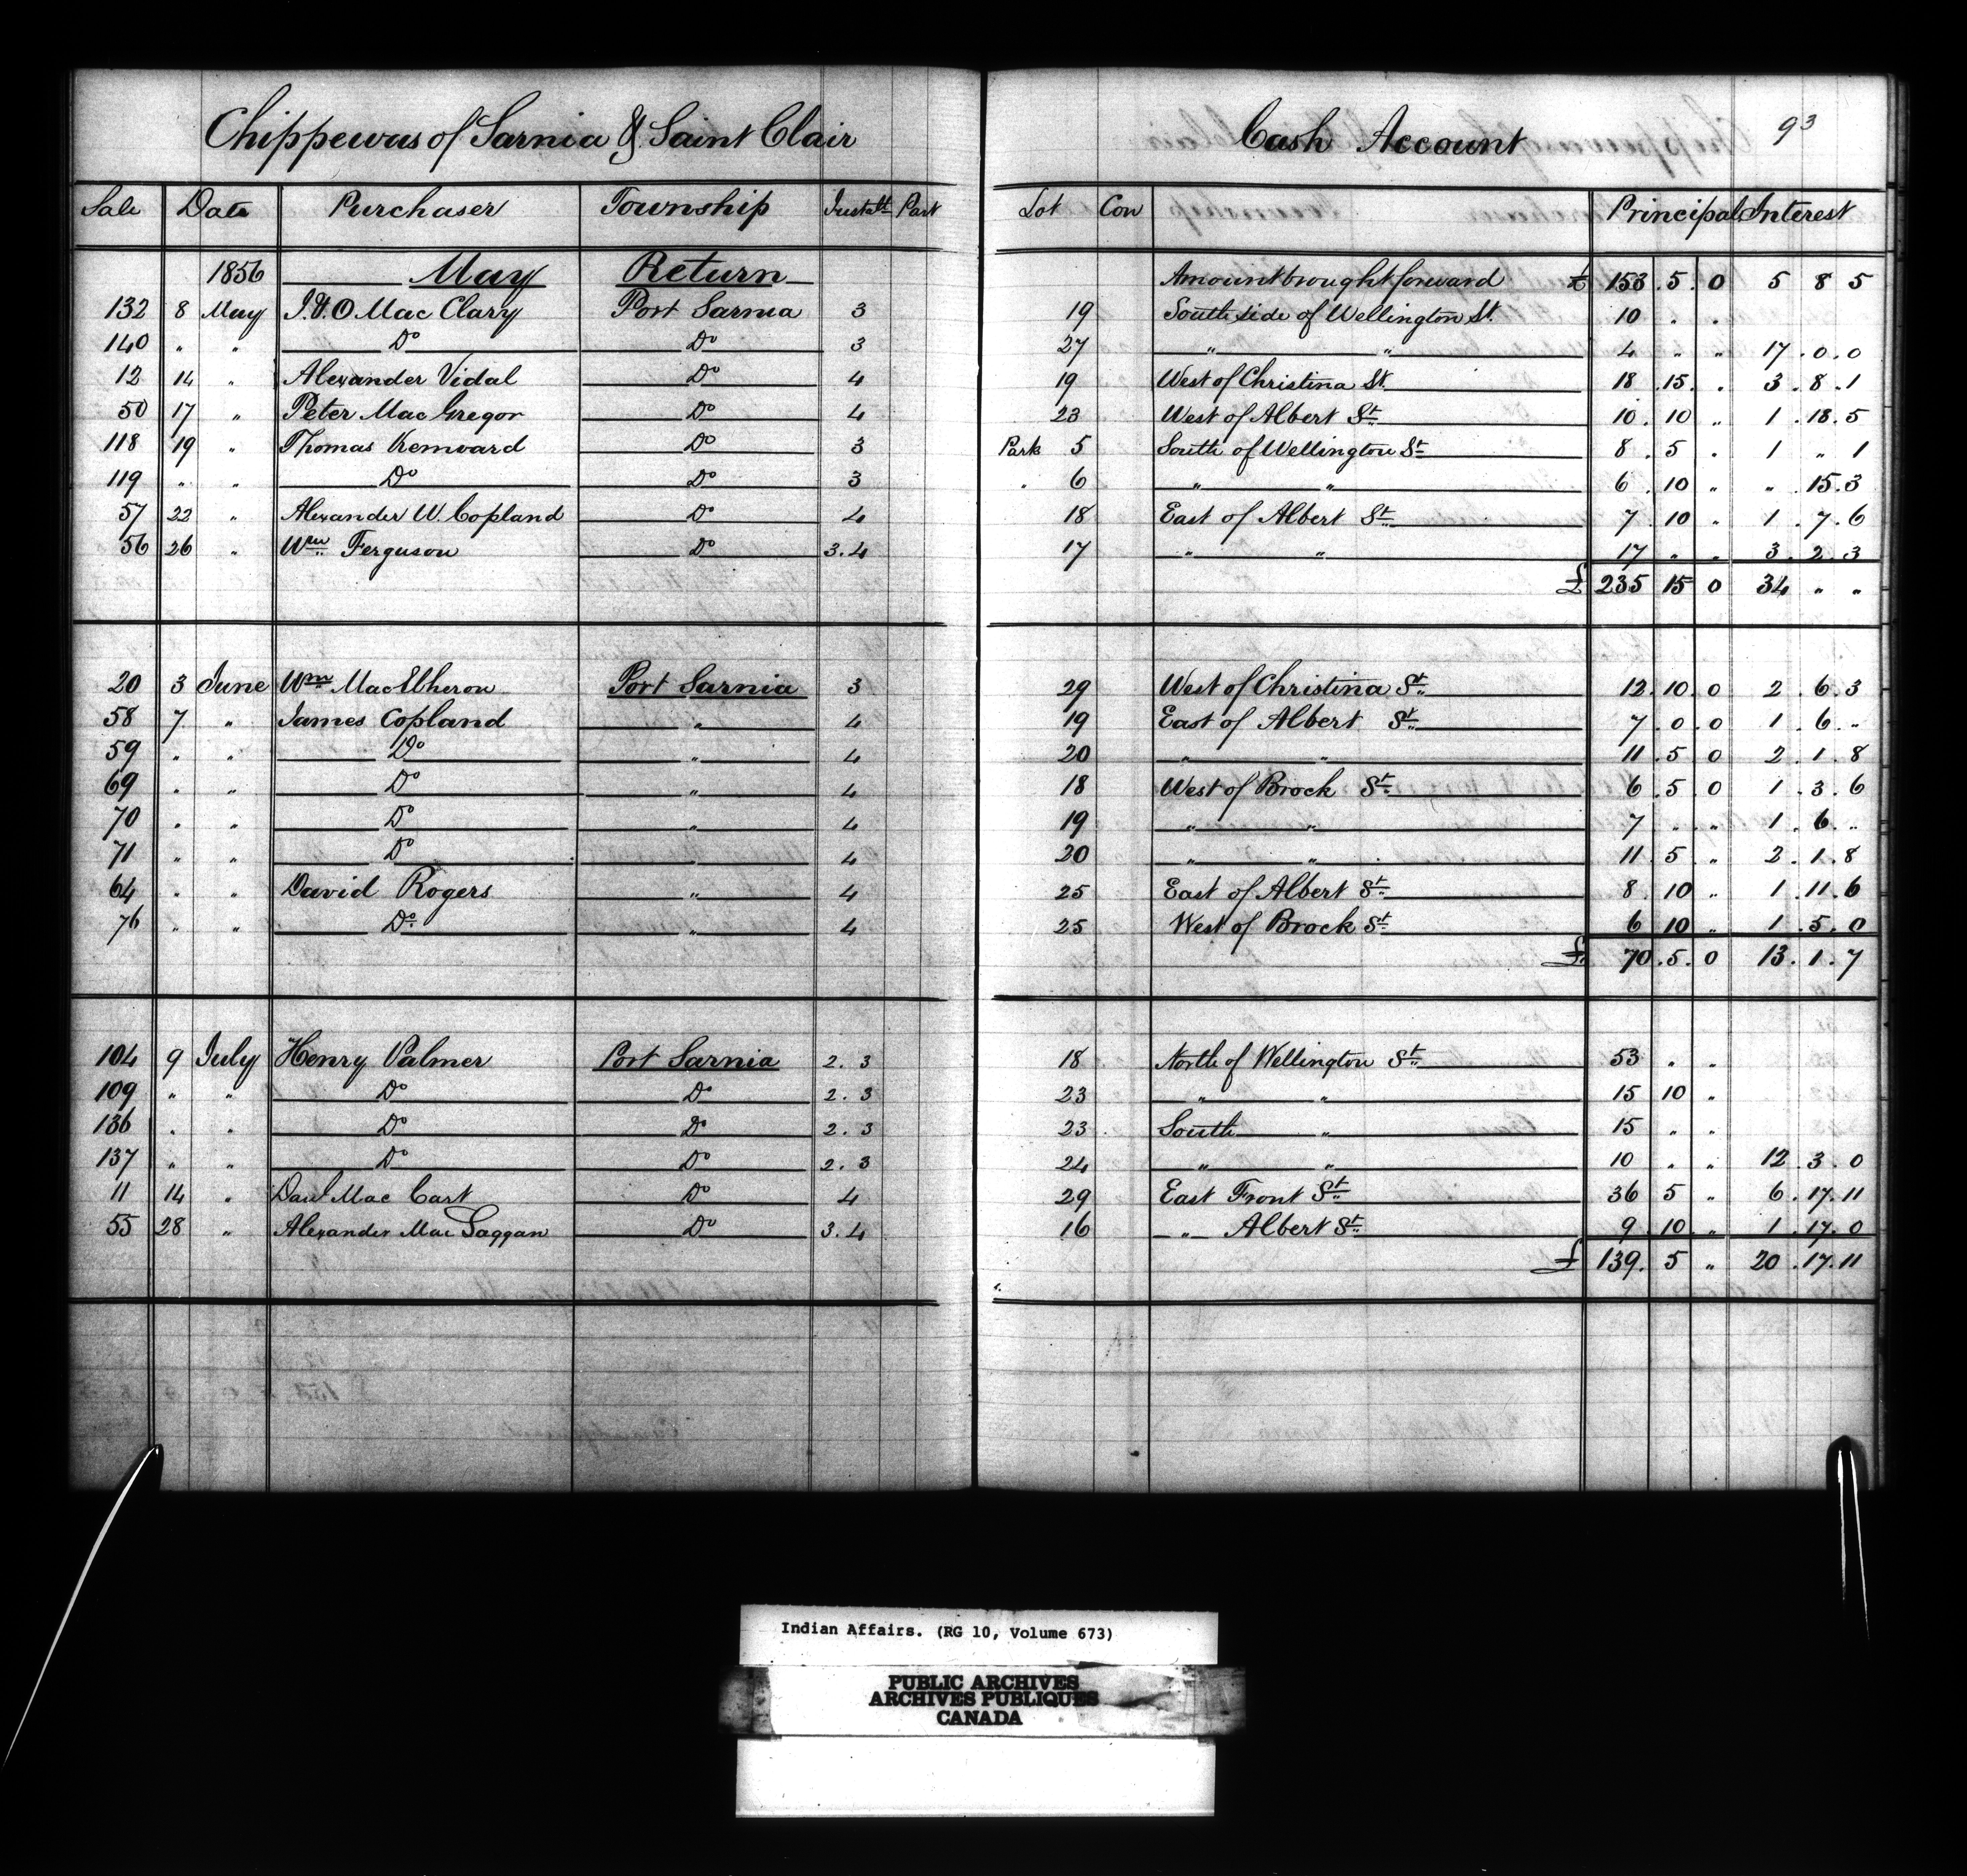 Chippewas of Sarnia & Saint Clair Cash Account 93
Sale Date Purchaser Township Instalt Part Lot Con Principal Interest
1856 May Return Amount brought forward £ 153 . 5 . 0 5 8 5
132 8 May J. & O Mac Clary Port Sarnia 3 19 South side of Wellington St. 10 . .
140 " " Do Do 3 27 " " 4 " " 17 . 0 . 0
12 14 " Alexander Vidal Do 4 19 West of Christina St. 18 . 15 . " 3 . 8 . 1
50 17 " Peter Mac Gregor Do 4 23 West of Albert St 10 . 10 " 1 . 18 . 5
118 19 " Thomas Kenward Do 3 Park 5 South of Wellington St 8 . 5 " 1 " 1
119 " " Do Do 3 " 6 " " 6 . 10 " " . 15 . 3
57 22 " Alexander W. Copland Do 4 18 East of Albert St 7 . 10 " 1 . 7 . 6
56 26 " Wm Ferguson Do 3 . 4 17 " " 17 " " 3 . 2 . 3
£ 235 15 0 34 " "
20 3 June Wm Mac Elheron Port Sarnia 3 29 West of Christina St 12 . 10 . 0 2 . 6 . 3
58 7 " James Copland " 4 19 East of Albert St 7 . 0 . 0 1 . 6 . "
59 " " Do " 4 20 " " 11 . 5 0 2 . 1 . 8
69 " " Do " 4 18 West of Brock St 6 . 5 . 0 1 . 3 . 6
70 " " Do " 4 19 " " 7 " " 1 . 6 . "
71 " " Do " 4 20 " " 11 . 5 " 2 . 1 . 8
64 " " David Rogers " 4 25 East of Albert St 8 . 10 " 1 . 11 . 6
76 " " Do " 4 25 West of Brock St 6 10 " 1 . 5 . 0
£ 70 . 5 . 0 13 . 1 . 7
104 9 July Henry Palmer Port Sarnia 2 . 3 18 North of Wellington St 53 " "
109 " " Do Do 2 . 3 23 " " 15 10 "
136 " " Do Do 2 . 3 23 South " 15 " "
137 " " Do Do 2 . 3 24 " " 10 " " 12 . 3 . 0
11 14 " Danl Mac Cart Do 4 29 East Front St 36 5 " 6 . 17 . 11
55 28 " Alexander Mac Gaggan Do 3 . 4 16 " Albert St 9 . 10 . " 1 . 17 . 0
£ 139 . 5 " 20 . 17 . 11
Indian Affairs. (RG 10, Volume 673)
PUBLIC ARCHIVES
ARCHIVES PUBLIQUES
CANADA